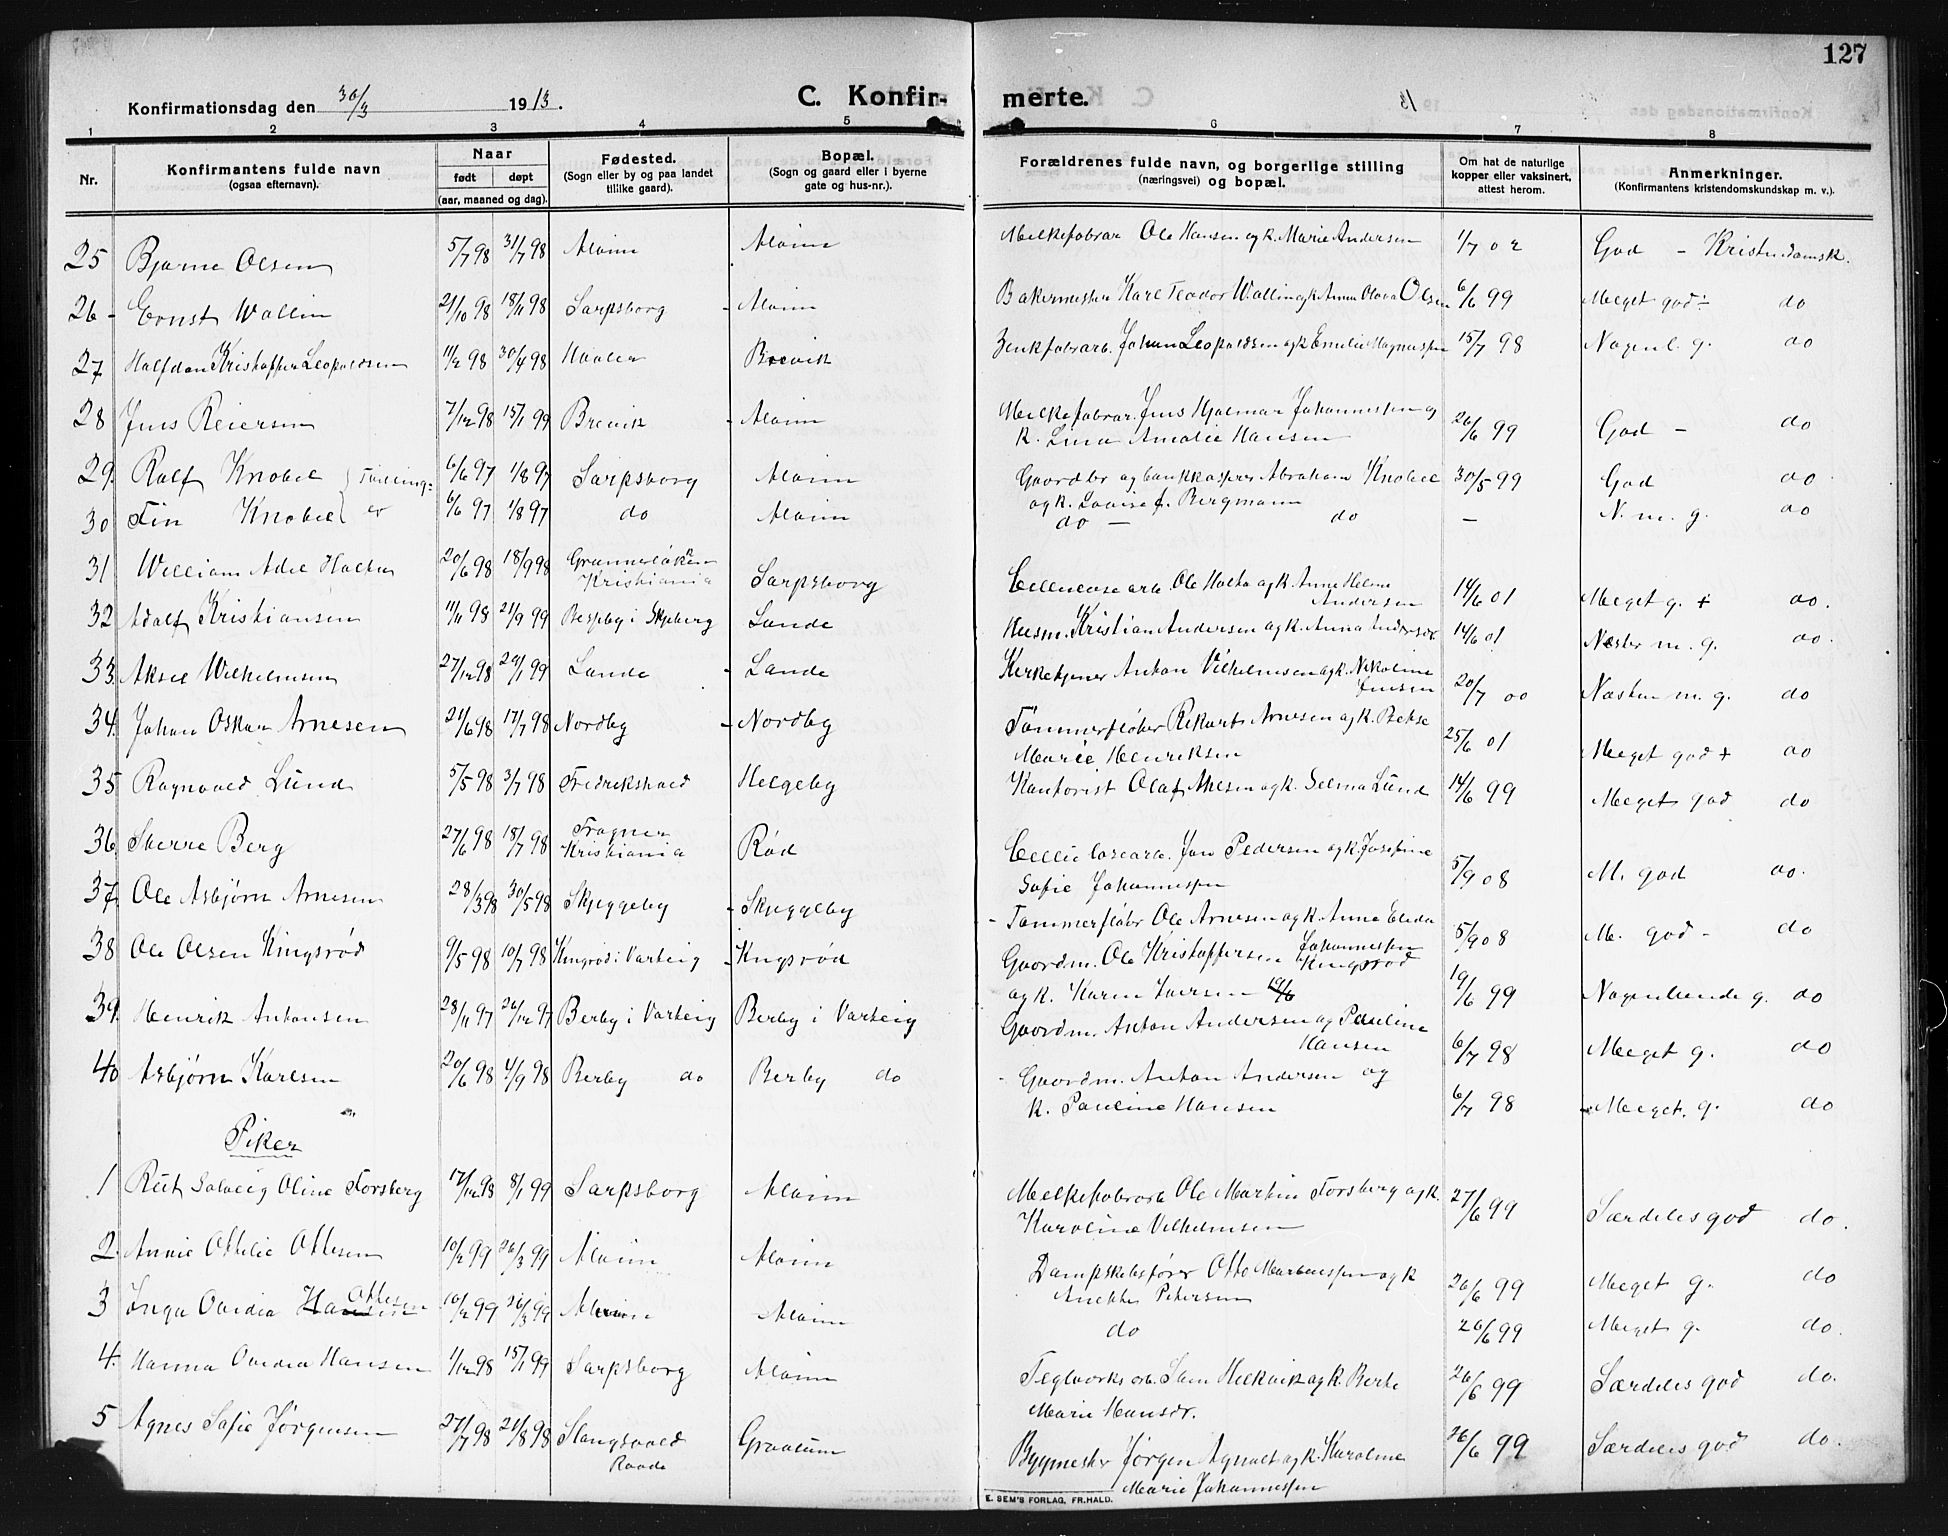 127
Konfirmationsdag den 30/3 1913.
C. Konfir- merte.
1 2 3 4 5 6 7 8
Nr.
Konfirmantens fulde navn
(ogsaa efternavn).
Naar
født døpt
(aar, maaned og dag).
Fødested.
(Sogn eller by og paa landet
tillike gaard).
Bopæl.
(Sogn og gaard eller i byerne
gate og hus-nr.).
Forældrenes fulde navn, og borgerlige stilling
(næringsvei) og bopæl.
Om hat de naturlige
kopper eller vaksinert,
attest herom.
Anmerkninger.
(Konfirmantens kristendomskundskap m. v.).
25 Bjarne Olsen 5/7 98 31/7 98 Alvim Alvim Melkefabrar Ole Hansen og k. Marie Andersen 1/7 02 God - Kristendomsk.
26 Ernst Wallin 21/10 98 18/11 98 Sarpsborg - Alvim Bakermester Karl Teodor Wallin og k. Anna Olava Olsen 6/6 99 Meget god ÷ do
27 Halfdan Kristoffer Leopoldsen 11/2 98 30/4 98 Brevik Johan Leopoldsen og k. Emelie Magnussen 15/7 98 Nogenl. g. do
28 Jens Reiersen 7/12 98 15/1 99 Brevik - Alvim Melkefabrar. Jens Hjalmar Johannessen og
k. Lina Amalie Hansen 26/6 99 God - do
29. Ralf Knobel } Tvilling- 6/6 97 1/8 97 Sarpsborg Alvim Gaardbr og bankkasserer Abraham Knobel
og k. Lovise f. Bergmann 30/5 99 God do
30 Fin Knobel } er 6/6 97 1/8 97 do Alvim do - do - N. m. g. do
31 William Adel Holter 20/6 98 18/9 98 Grunnerløkken
Kristiania Sarpsborg Cellulose arb. Ole Holte og k. Anne Helene
Andersen 14/6 01 Meget g. + do.
32 Adolf Kristiansen 11/11 98 21/9 99 i Skjeberg Lande Husm. Kristian Andersen og k. Anna 14/6 01 Næsten m. g. do.
33 Aksel Wilhelmsen 27/12 98 99 Lande - Lande Kirketjener Anton Vilhelmsen og k. Nikoline
Jensen 20/7 00 Næsten m. g. do
34. Johan Oskar Arnesen 21/6 98 17/7 98 Nordby - Nordby Tømmerfløter Rikart Arnesen og k.
Marie Henriksen 25/6 01 Meget god + do
35 Ragnvald Lund 5/5 98 3/7 98 Fredrikshald Helgeby Kontorist Olaf og k. Selma Lund 14/6 99 Meget god do
36 Sverre Berg 27/6 98 18/7 98 Frogner
Kristiania Rød Cellulosearb. Jon Pedersen og k. Josefine
Sofie Johannessen 5/9 08 M. god do.
37. Ole Asbjørn Arnesen 28/3 98 30/5 98 Skjeggeby - Skjeggeby - Tømmerfløbr Ole Arnesen og k. Anna Elida
Johannessen 5/9 08 M. god - do
38 Ole Olsen Kingsrød 9/5 98 10/7 98 Kingsrød i Varteig - Kngsrød Gaardm. Ole Kristoffersen Kingsrød
og k. Karen Iversen 19/6 19/6 99 Nogenlunde g. do
39. Henrik Antonsen 28/11 97 26/12 97 Berby i Varteig Berby i Varteig Gaardm. Anton Andersen og Pauline
Hansen 6/7 98 Meget g. do
40 Asbjørn Karlsen 20/6 98 4/9 98 Berby do Berby do - Gaardm. Anton Andersen og
k. Pauline Hansen 6/7 98 Meget. g. do
Piker
1 Rut Solveig Oline Forsberg 17/12 98 8/1 99 Sarpsborg Alvim Melkefabrarb Ole Martin Forsberg og k.
Karoline Vilhelmsen 27/6 99 Særdeles god do.
2. Annie Ottilie Ottesen 10/2 99 26/3 99 Alvim Alvim Dampskibsfører Otto Martinussen og k
Anekke Petersen 26/6 99 Meget g. do
3 Inga Ovidia Hansen Ottesen 10/2 99 26/3 99 Alvim Alvim do 26/6 99 Meget g. do.
4. Hanna Ovidia Hansen 1/12 98 15/1 99 Sarpsborg Alvim Teglverks arb. og k. Berte
Marie Hansdr. 26/6 99 Særdeles god do.
5 Agnes Sofie Jørgensen 27/7 98 21/8 98 Slangsvold
Raade Graalum Bygmester Jørgen og k. Karoline
Marie Johannessen 26/6 99 Særdeles god do.
E. SEM'S FORLAG, FR.HALD.